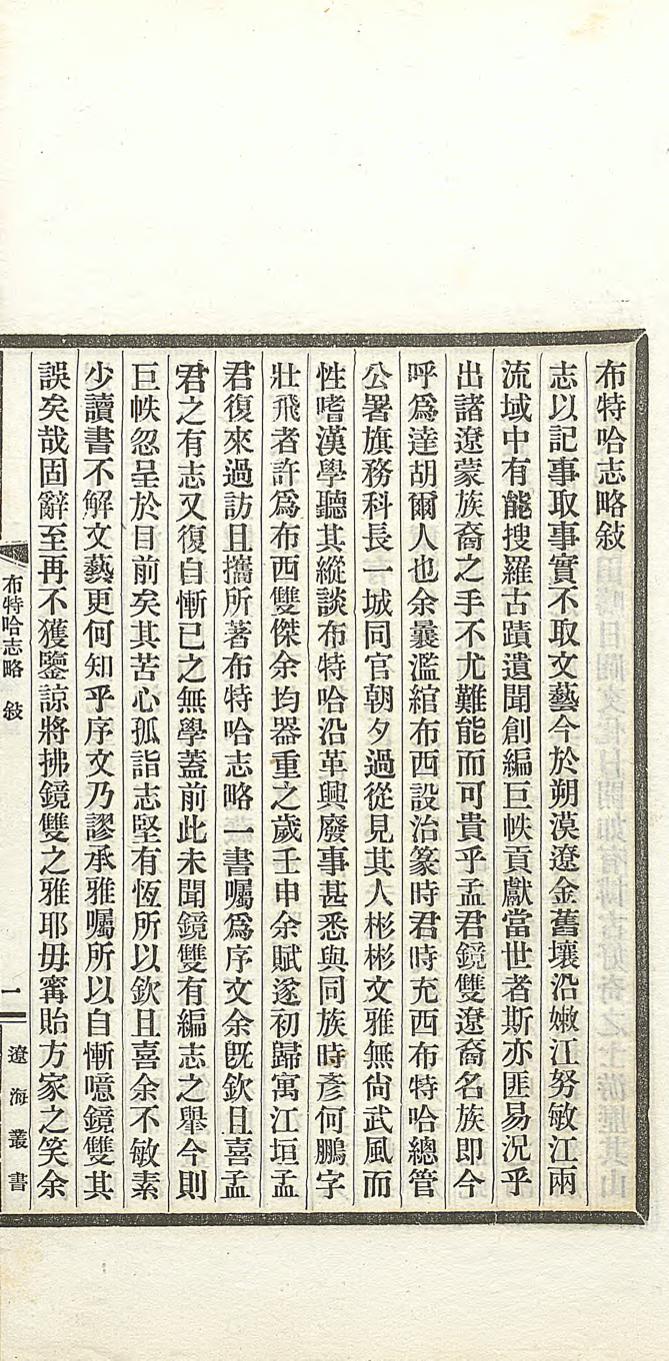 布特哈志略敍
志以記事取事實不取文藝今於朔漠遼金舊壤沿嫩江努敏江兩
流域中有能搜羅古蹟遺聞創編巨帙貢獻當世者斯亦匪易況乎
出諸遼蒙族裔之手不尤難能而可貴乎孟君鏡雙遼裔名族即今
呼爲達胡爾人也余曩濫綰布西設治篆時君時充西布特哈總管
公署旗務科長一城同官朝夕過從見其人彬彬文雅無尙武風而
性嗜漢學聽其縱談布特哈沿革興廢事甚悉與同族時彥何鵬字
壯飛者許爲布西雙傑余均器重之歲壬申余賦遂初歸寓江垣孟
君復來過訪且攜所著布特哈志略一書囑爲序文余旣欽且喜孟
君之有志又復自慚已之無學蓋前此未聞鏡雙有編志之舉今則
巨帙忽呈於目前矣其苦心孤詣志堅有恆所以欽且喜余不敏素
少讀書不解文藝更何知乎序文乃謬承雅囑所以自慚噫鏡雙其
誤矣哉固辭至再不獲鑒諒將拂鏡雙之雅耶毋甯貽方家之笑余
布特哈志略 敍
一
遼海叢書